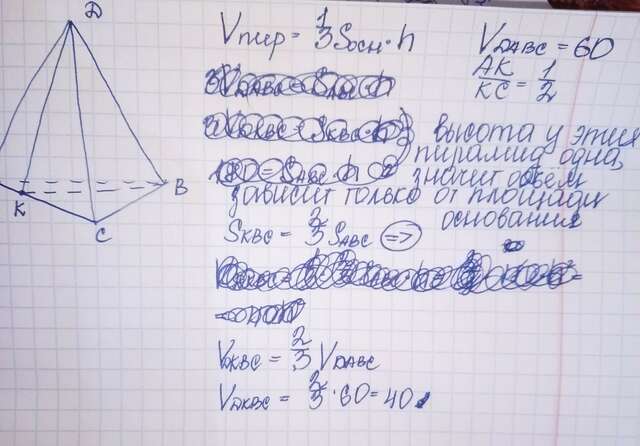 D
K
C
B
Vпир = 1/3 Sосн · h
VDABC = 60
AK/KC = 1/2
высота у этих
пирамид одна,
значит объем
зависит только от площади
основания
SKBC = 2/3 SABC =>
VDKBC = 2/3 VDABC
VDKBC = 2/3 · 60 = 40